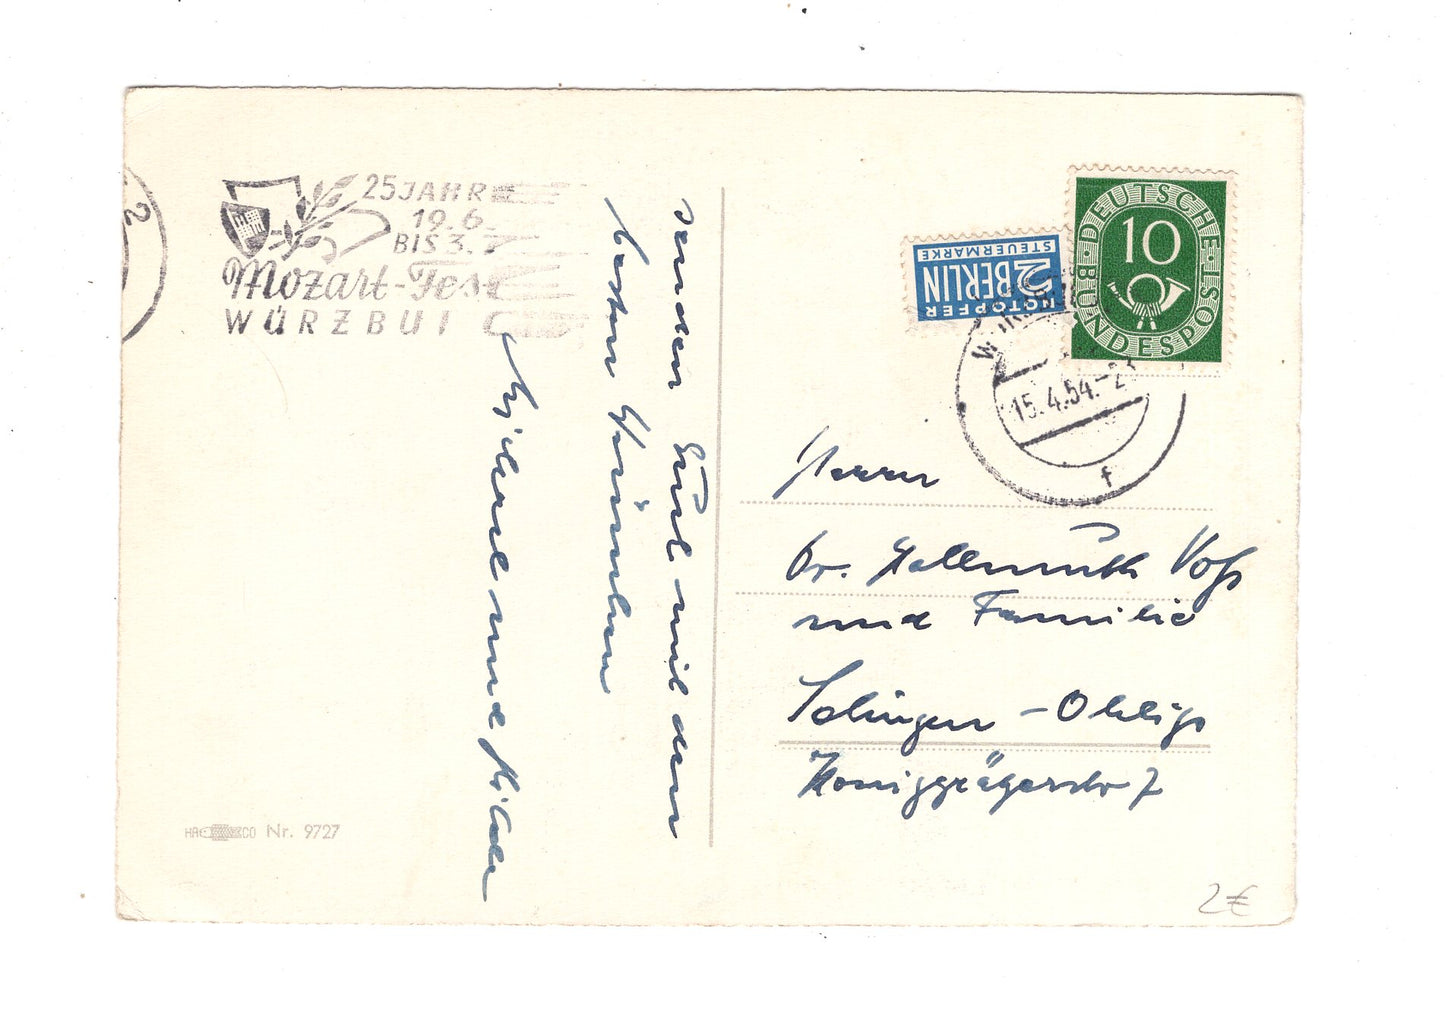 25 JAHRE
19.6.
BIS 3.7
Mozart-Fest
WÜRZBU
2
senden Euch mit den
besten Grüssen
Michael und Hilde
NOTOPFER
2 BERLIN
STEUERMARKE
DEUTSCHE
10
BUNDESPOST
15.4.54.-2
f
Herrn
Dr. Hellmuth Voß
und Familie
Solingen-Ohligs
Königgrätzerstr 7
HACO Nr. 9727
2€